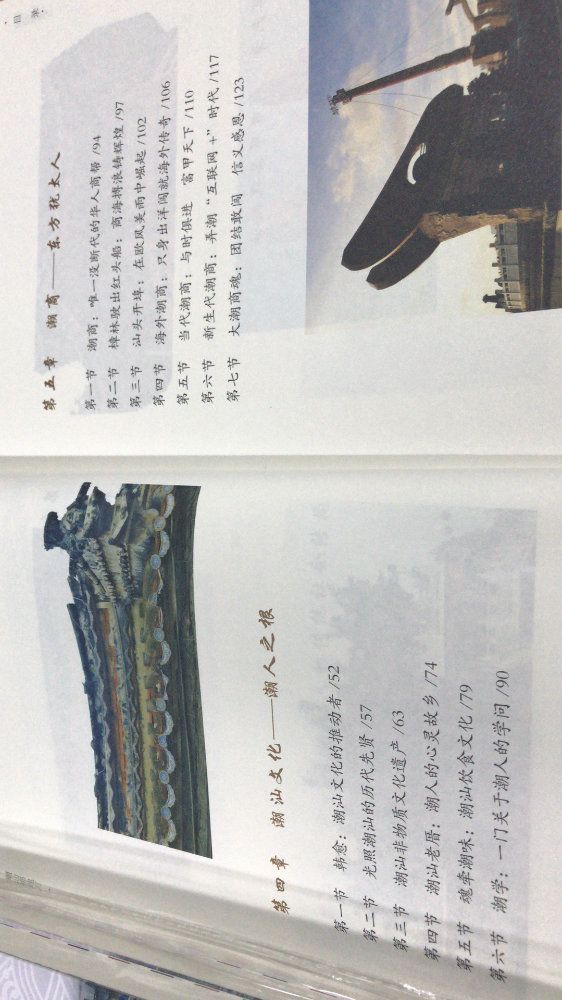 第四章 潮汕文化——潮人之根
第一节 韩愈：潮汕文化的推动者 /52
第二节 光照潮汕的历代先贤 /57
第三节 潮汕非物质文化遗产 /63
第四节 潮汕老厝：潮人的心灵故乡 /74
第五节 魂牵潮味：潮汕饮食文化 /79
第六节 潮学：一门关于潮人的学问 /90
·目录·
第五章 潮商——东方犹太人
第一节 潮商：唯一没断代的华人商帮 /94
第二节 樟林驶出红头船：商海搏浪铸辉煌 /97
第三节 汕头开埠：在欧风美雨中崛起 /102
第四节 海外潮商：只身出洋闯就海外传奇 /106
第五节 当代潮商：与时俱进 富甲天下 /110
第六节 新生代潮商：弄潮“互联网+”时代 /117
第七节 大潮商魂：团结敢闯 信义感恩 /123